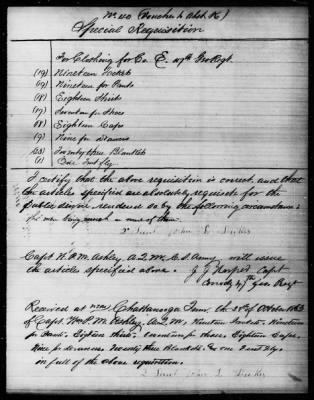 No 40 (Voucher to Abst. K)
Special Requisition
For Clothing for Co. E. 47th Geo Regt.
(19) Nineteen Jackets
(19) Nineteen pr Pants
(18) Eighteen Shirts
(17) Seventeen pr Shoes
(18) Eighteen Caps
(9) Nine pr Drawers
(23) Twenty three Blankets
(1) One Tent fly
I certify that the above requisition is correct, and that
the articles specified are absolutely requisite for the
public service rendered so by the following circumstances
the men being much in want of them.
2d Lieut John L.
Capt W. M. Ashley, A.Q.M. C.S. Army will issue
the articles specified above. J J Capt
Comdg 47th Geo Regt
Received at near Chattanooga Tenn. the 28th of October 1863
of Capt. W. M. Ashley, A.Q.M., Nineteen Jackets, Nineteen
pr Pants, Eighteen Shirts, Seventeen pr Shoes, Eighteen Caps,
Nine pr drawers, Twenty three Blankets, & one Tent fly,
in full of the above requisition.
2 Lieut John L.